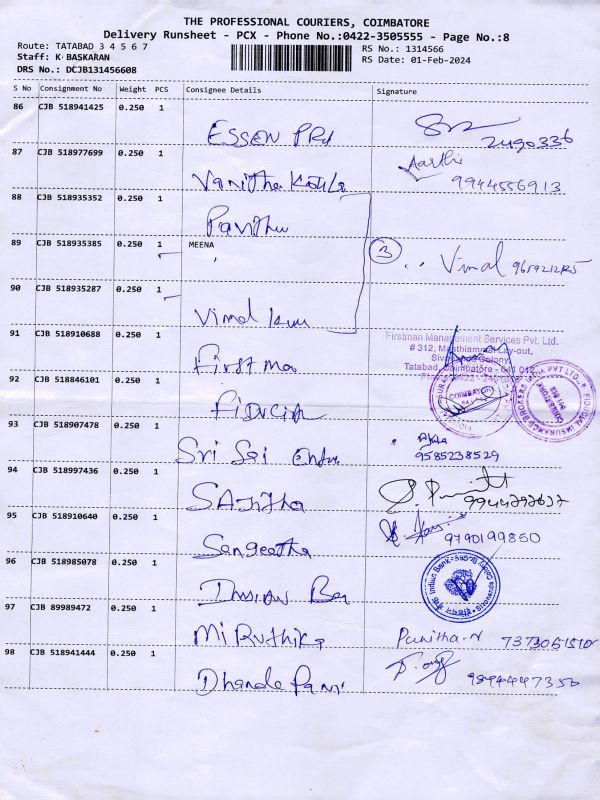 THE PROFESSIONAL COURIERS, COIMBATORE
Delivery Runsheet - PCX - Phone No.:0422-3505555 - Page No.:8
Route: TATABAD 3 4 5 6 7
RS No.: 1314566
Staff: K BASKARAN
RS Date: 01-Feb-2024
DRS No.: DCJB131456608
S No Consignment No Weight PCS Consignee Details Signature
86 CJB 518941425 0.250 1
ESSEN PRd
2490336
87 CJB 518977699 0.250 1
Aarthi
Vanitha
9944556913
88 CJB 518935352 0.250 1
Pavithu
89 CJB 518935385 0.250 1 MEENA
3
Vimal
90 CJB 518935287 0.250 1
Vimal
91 CJB 518910688 0.250 1
Firstman Management Services Pvt. Ltd.
Firstma
92 CJB 518846101 0.250 1
COIMBATORE
93 CJB 518907478 0.250 1
Sri Sai
9585238529
94 CJB 518997436 0.250 1
SAnitha
95 CJB 518910640 0.250 1
9790199850
Sangeetha
96 CJB 518985078 0.250 1
Indian Bank
97 CJB 89989472 0.250 1
MiRuthika
Punitha-N
98 CJB 518941444 0.250 1
Dhanda Pani
9894447350